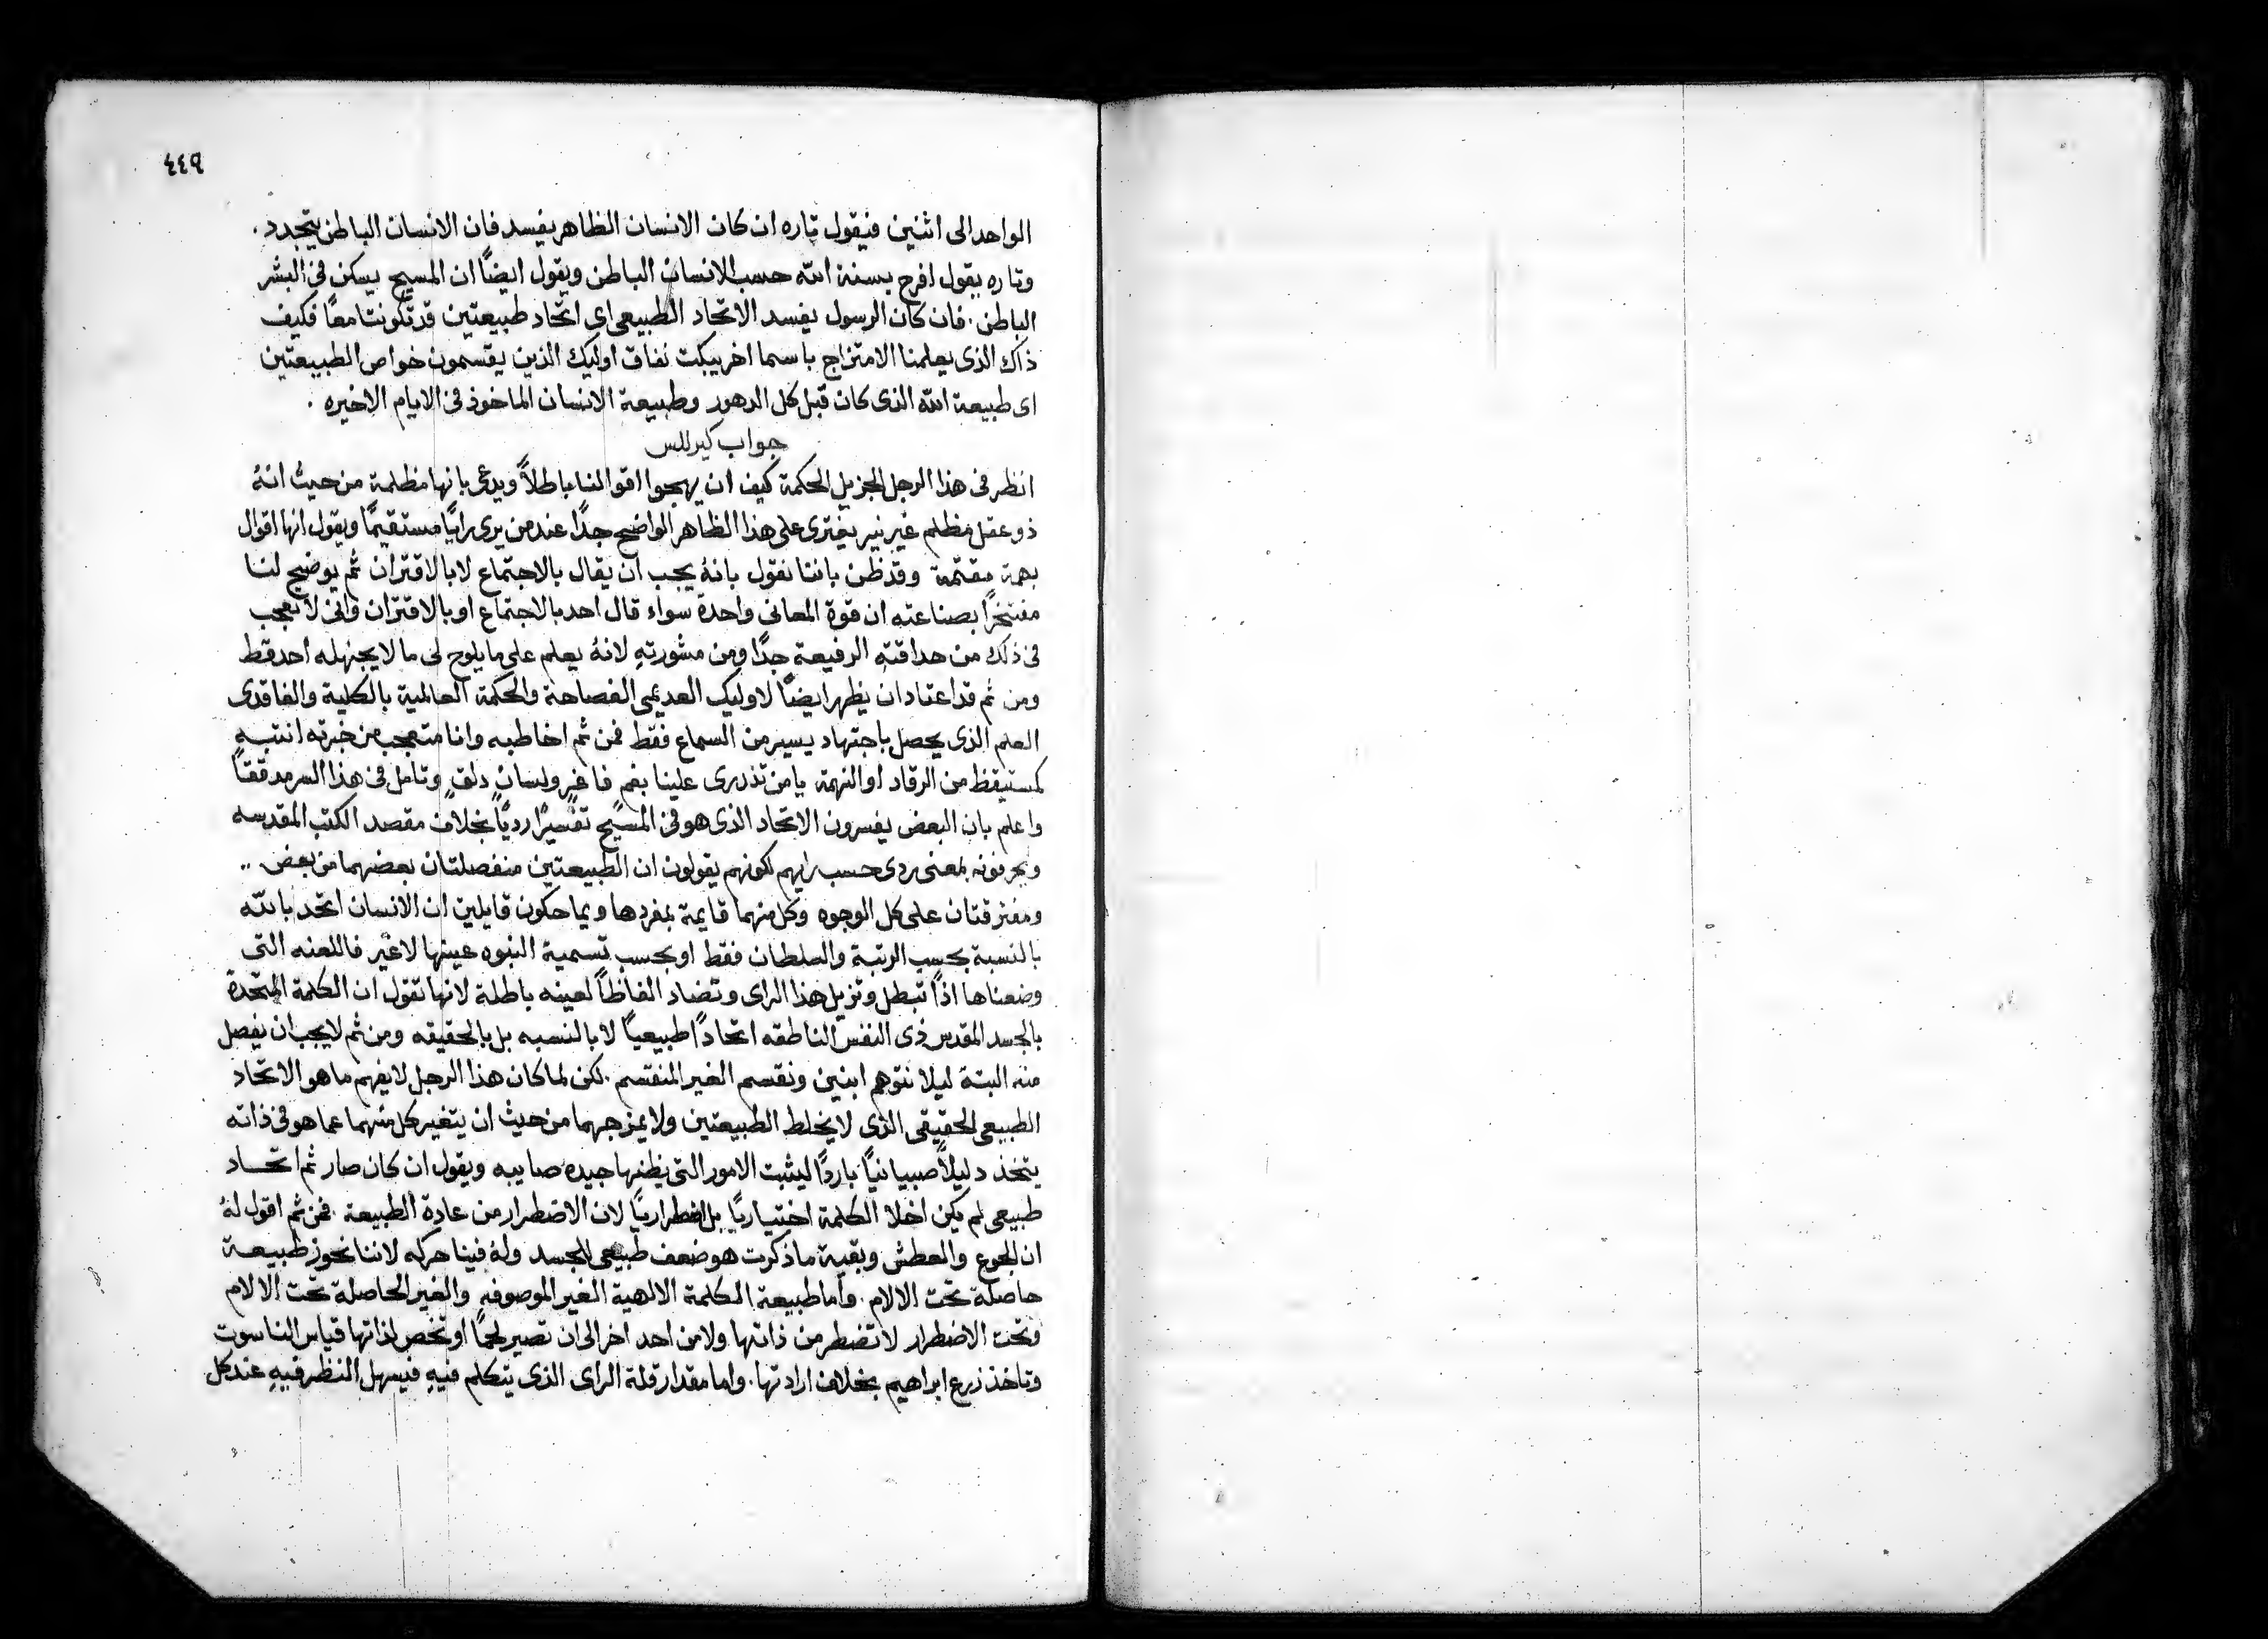 ٤٤٩
الواحد الى اثنين فيقول تاره ان كان الانسان الظاهر يفسد فان الانسان الباطن يتجدد.
وتاره يقول افرح بسنة الله حسب الانسان الباطن ويقول ايضًا ان المسيح يسكن في البشر
الباطن. فان كان الرسول يفسد الاتحاد الطبيعى اى اتحاد طبيعتين قد تكونتا معًا فكيف
ذاك الذى يعلمنا الامتزاج باسما اخر يبكت نفاق اوليك الذين يقسمون خواص الطبيعتين
اى طبيعة الله الذى كان قبل كل الدهور وطبيعة الانسان الماخوذ فى الايام الاخيره.
جواب كيرللس
انظر فى هذا الرجل الجزيل الحكمة كيف ان يهجوا اقوالنا باطلاً ويدعى بانها مظلمة من حيث انهُ
ذو عقل مظلم غير نير يفترى على هذا الظاهر الواضح جدًا عند من يرى رايًا مستقيمًا ويقول انها اقوال
بهمة مقتمة وقد ظن باننا نقول بانهُ يجب ان يقال بالاجتماع لا بالاقتران ثم يوضح لنا
مفتخرًا بصناعته ان قوة المعانى واحدة سواء قال احد بالاجتماع او بالاقتران وانى لاتعجب
فى ذلك من حداقتهِ الرفيعة جدًا ومن مشورتهِ لانهُ يعلم على ما يلوح لى ما لا يجهله احد قط
ومن ثم قد اعتاد ان يظهر ايضًا لاوليك العديمى الفصاحة والحكمة العالمية بالكلية والفاقدى
العلم الذى يحصل باجتهاد يسير من السماع فقط فمن ثم اخاطبه وانا متعجب من خبرته انتبه
كمستيقظ من الرقاد او النهمة يا من تذدرى علينا بفم فاغرٍ ولسانٍ دلقٍ وتامل فى هذا السر مدققًا
واعلم بان البعض يفسرون الاتحاد الذى هو فى المسيح تفسيرًا رديًا بخلاف مقصد الكتب المقدسه
ويحرفونه بمعنى ردى حسب رايهم لكونهم يقولون ان الطبيعتين منفصلتان بعضهما من بعض ..
ومفترقتان على كل الوجوه وكل منهما قايمة بمفردها ويماحكون قايلين ان الانسان اتحد بالله
بالنسبة بحسب الرتبة والسلطان فقط او بحسب تسمية البنوه عينها لا غير فاللعنه التى
وضعناها اذًا تبطل وتزيل هذا الراى وتضاد الفاظاً لعينه باطلة لانها تقول ان الكلمة المتحدة
بالجسد المقدس ذى النفس الناطقه اتحادًا طبيعيًا لا بالنسبه بل بالحقيقه ومن ثم لا يجب ان يفصل
منه البتة ليلا نتوهم ابنين ونقسم الغير المنقسم. لكن لما كان هذا الرجل لا يفهم ما هو الاتحاد
الطبيعى الحقيقى الذى لا يخلط الطبيعتين ولا يمزجهما من حيث ان يتغير كل منهما عما هو فى ذاته
يتخذ دليلاً صبيانيًا باردًا ليثبت الامور التى يظنها جيده صايبه ويقول ان كان صار ثم اتحاد
طبيعى لم يكن اخلا الكلمة اختياريًا بل اضطراريًا لان الاضطرار من عادة الطبيعة. فمن ثم اقول لهُ
ان الجوع والعطش وبقية ما ذكرت هو ضعف طبيعى للجسد ولهُ فينا حركه لاننا نحوز طبيعة
حاصلة تحت الالام. واما طبيعة الكلمة الالهية الغير الموصوفه والغير الحاصلة تحت الالام
وتحت الاضطرار لا تضطر من ذاتها ولا من احد اخر الى ان تصير لحمًا او تخص لذاتها قياس الناسوت
وتاخذ زرع ابراهيم بخلاف ارادتها. واما مقدار قلة الراى الذى يتكلم فيهِ فيسهل النظر فيهِ عند كل